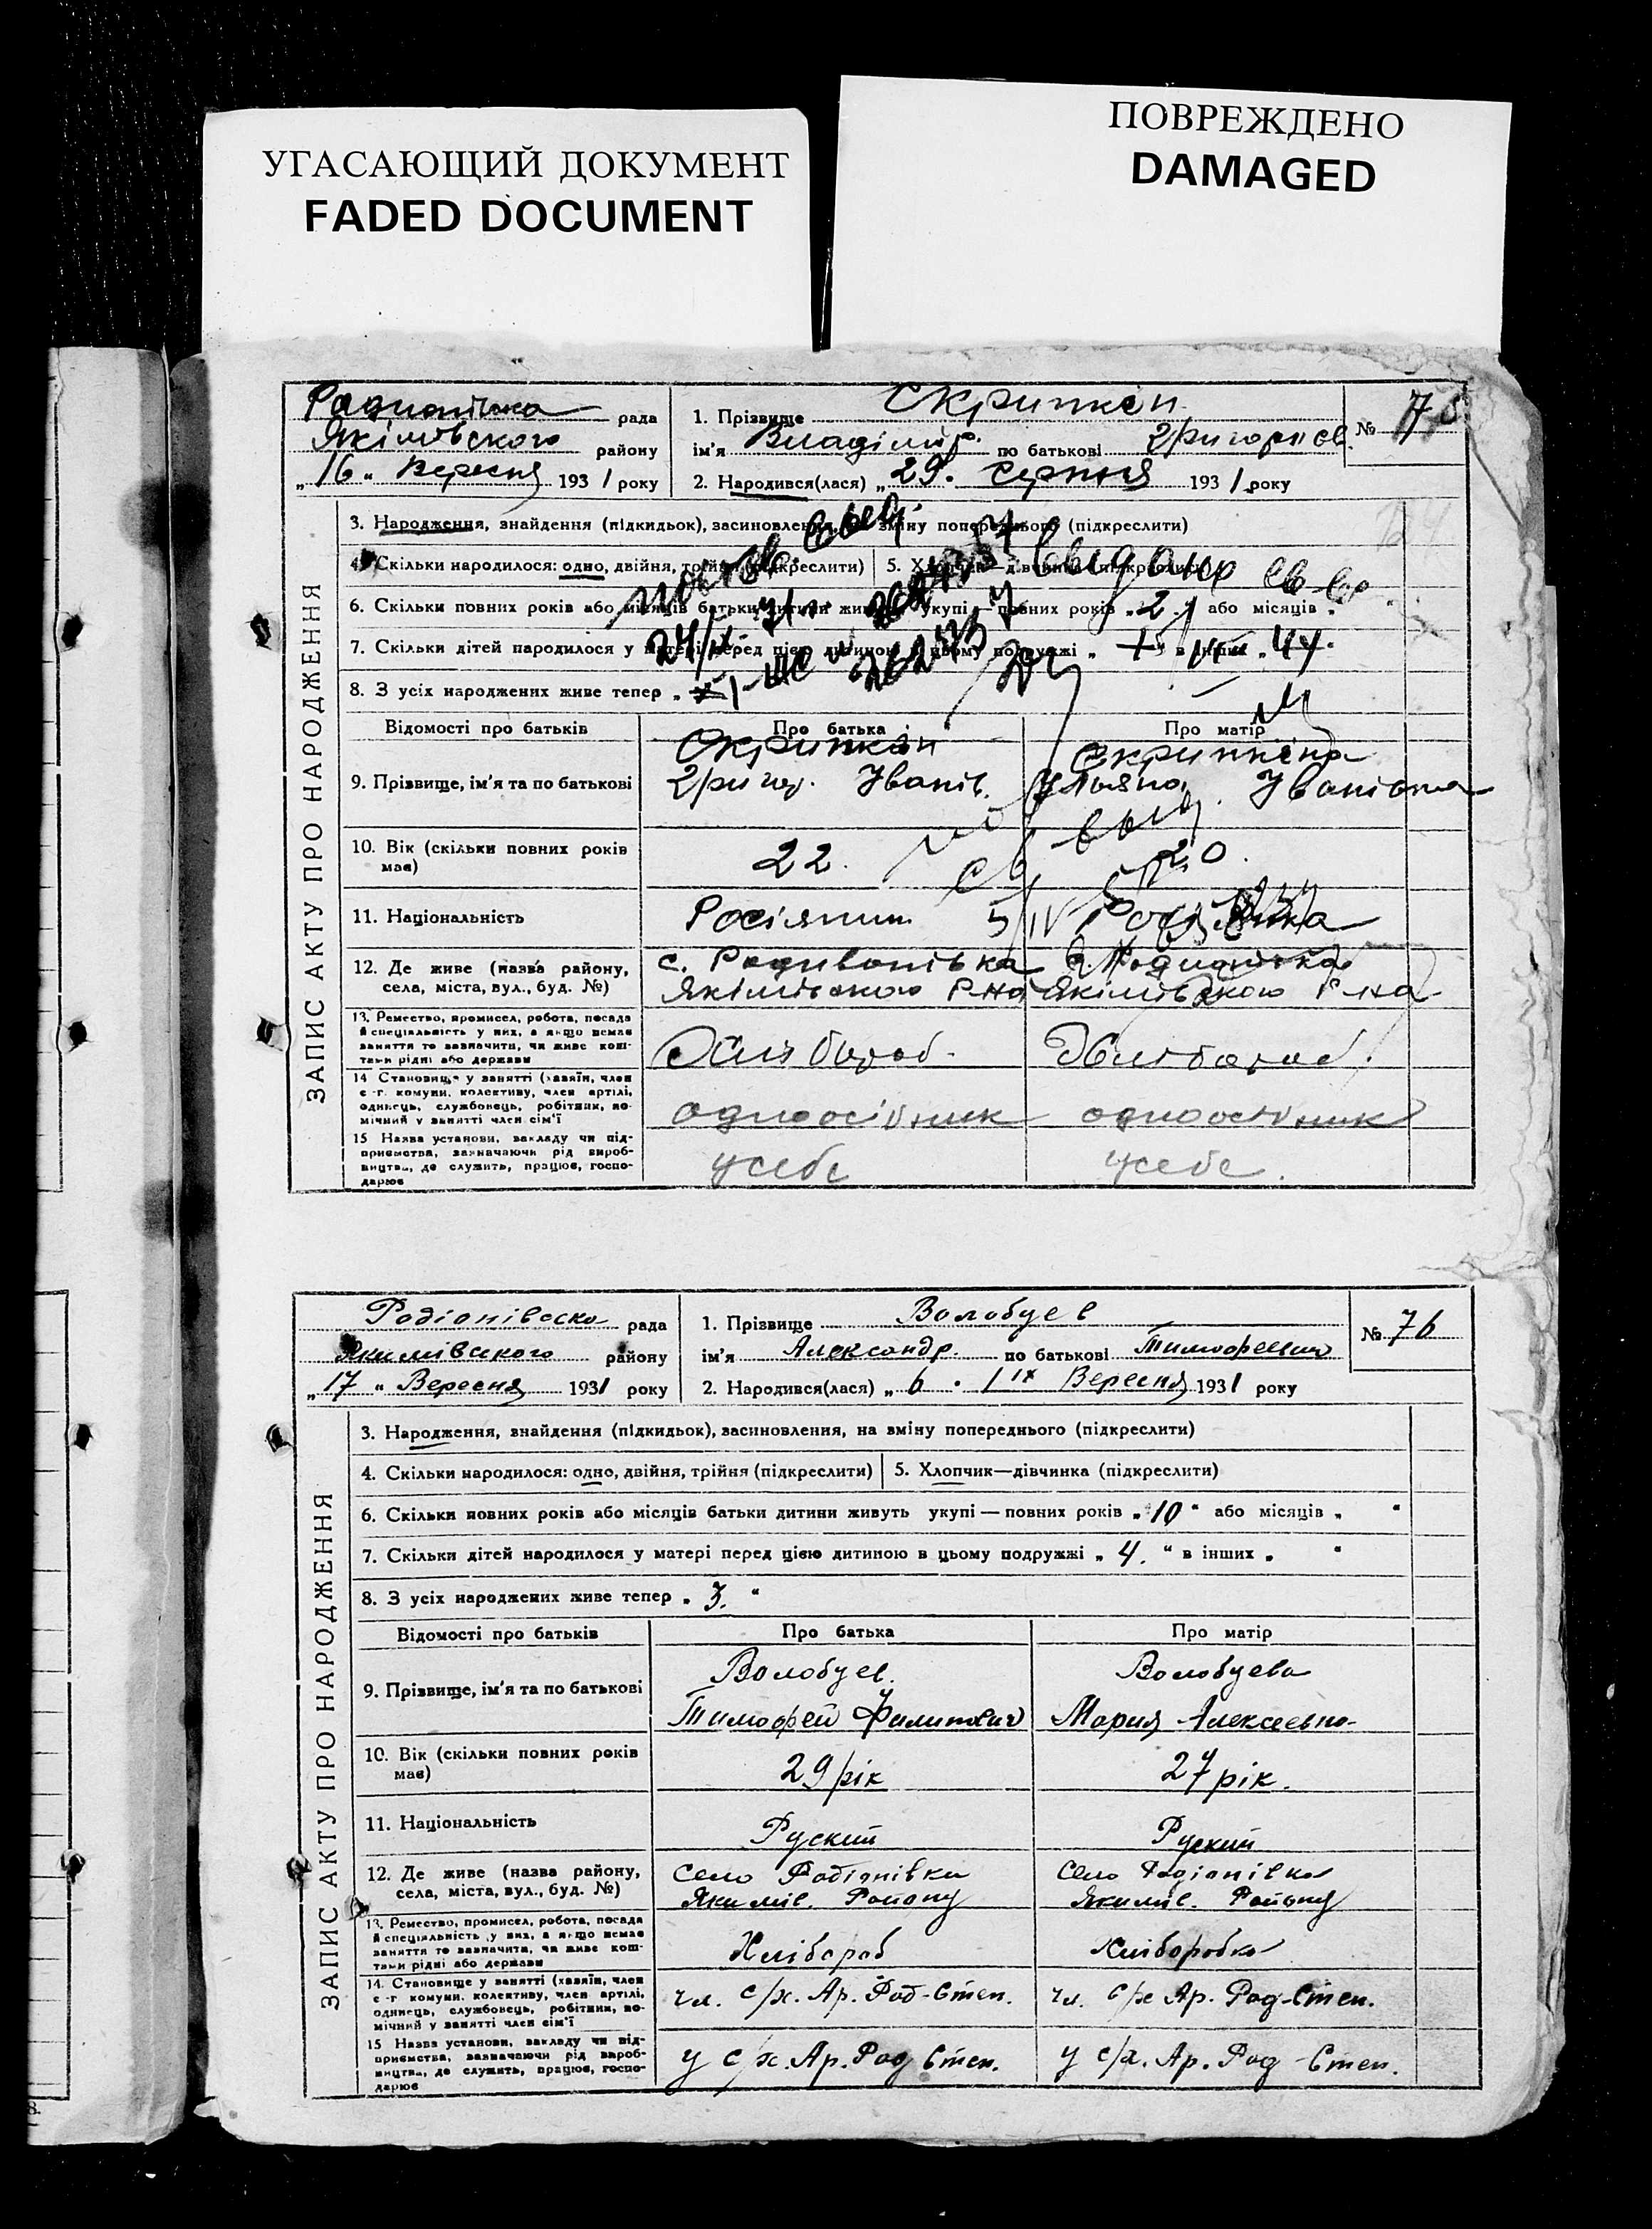 УГАСАЮЩИЙ ДОКУМЕНТ
FADED DOCUMENT
ПОВРЕЖДЕНО
DAMAGED
ЗАПИС АКТУ ПРО НАРОДЖЕННЯ
рада
Якімовського району
„16“ Вересня 1931 року
1. Прізвище Скрипкін
ім'я Владімір по батькові Григорпов
№
2. Народився(лася) „29. Серпня 1931 року
3. Народження, знайдення (підкидьок), засиновлення, на зміну попереднього (підкреслити)
4. Скільки народилося: одно, двійня, трійня (підкреслити) 5. Хлопчик—дівчинка (підкреслити)
6. Скільки повних років або місяців батьки дитини живуть укупі—повних років „2“ або місяців „
7. Скільки дітей народилося у матері перед цією дитиною в цьому подружжі „ “ в інших „
8. З усіх народжених живе тепер „
Відомості про батьків Про батька Про матір
9. Прізвище, ім'я та по батькові
Скрипкін
Григор. Іванів.
Скрипкіна
Уляна Іванівна
10. Вік (скільки повних років має) 22. 20.
11. Національність Росіянин
5/IV
12. Де живе (назва району, села, міста, вул., буд. №)
с. Родивонівка
Якімівського Р-на Якімівського Р-на
13. Ремество, промисел, робота, посада й спеціальність у них, а якщо немає заняття то зазначити, чи живе коштами рідні або держави
14 Становище у занятті (хазяїн, член с.-г. комуни, колективу, член артілі, одинець, службовець, робітник, помічний у занятті член сім'ї
одноосібник одноосібник
15 Назва установи, закладу чи підприємства, зазначаючи рід виробництва, де служить, працює, господарює
у себе у себе.
ЗАПИС АКТУ ПРО НАРОДЖЕННЯ
Родіонівська рада
Якимівського району
„17“ Вересня 1931 року
1. Прізвище Волобуев
ім'я Александр. по батькові Тимофеевич
№ 76
2. Народився(лася) „6. IX Вересня 1931 року
3. Народження, знайдення (підкидьок), засиновлення, на зміну попереднього (підкреслити)
4. Скільки народилося: одно, двійня, трійня (підкреслити) 5. Хлопчик—дівчинка (підкреслити)
6. Скільки повних років або місяців батьки дитини живуть укупі—повних років „10“ або місяців „ “
7. Скільки дітей народилося у матері перед цією дитиною в цьому подружжі „4.“ в інших „ “
8. З усіх народжених живе тепер „3.“
Відомості про батьків Про батька Про матір
9. Прізвище, ім'я та по батькові
Волобуев. Волобуева
Тимофей Филипович Мария Алексеевна
10. Вік (скільки повних років має) 29 рік 27 рік.
11. Національність Руский Руский
12. Де живе (назва району, села, міста, вул., буд. №)
Село Родіонівки Село Родіонівка
Якимів. Району Якимів. Району
13. Ремество, промисел, робота, посада й спеціальність у них, а якщо немає заняття то зазначити, чи живе коштами рідні або держави
Хлібороб Хліборобка
14. Становище у занятті (хазяїн, член с.-г. комуни, колективу, член артілі, одинець, службовець, робітник, помічний у занятті член сім'ї
чл. с/х. Ар. Род-Степ. чл. с/х Ар. Род-Степ.
15 Назва установи, закладу чи підприємства, зазначаючи рід виробництва, де служить, працює, господарює
у с/х. Ар. Род Степ. у с/х. Ар. Род-Степ.
8.